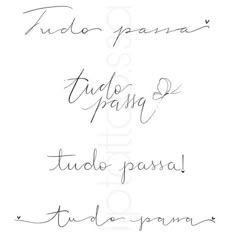 Tudo passa
tudo
passa
tudo passa!
tudo passa